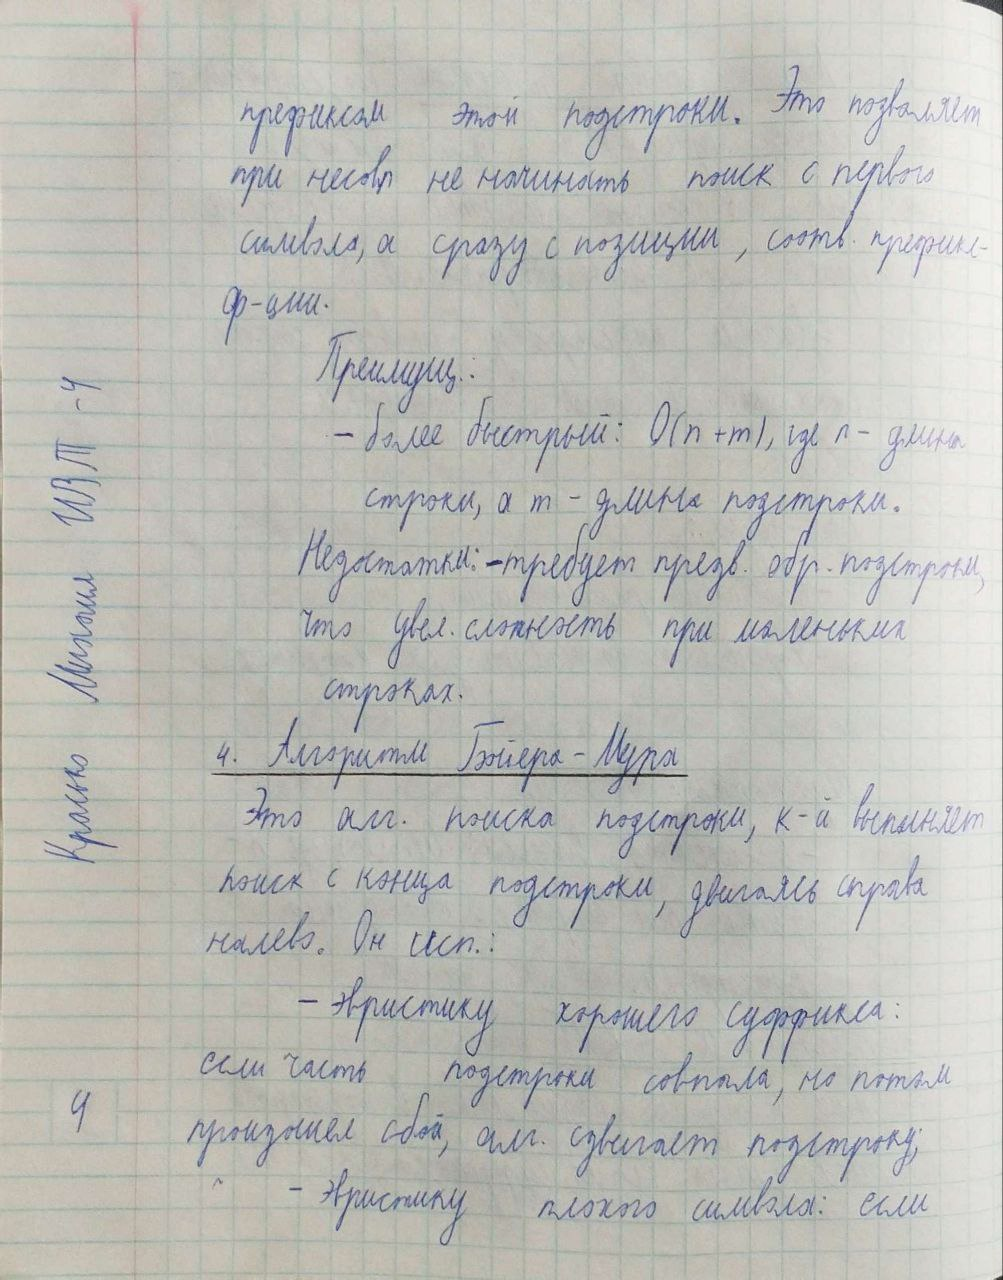 префиксом этой подстроки. Это позволяет
при несовп не начинать поиск с первого
символа, а сразу с позиции, соотв. префикс-
ф-ции.
Преимущ.:
- более быстрый: O(n+m), где n - длина
строки, а m - длина подстроки.
Недостатки: - требует предв. обр. подстроки,
что увел. сложность при маленьких
строках.
4. Алгоритм Бойера - Мура
Это алг. поиска подстроки, к-й выполняет
поиск с конца подстроки, двигаясь справа
налево. Он исп.:
- эвристику хорошего суффикса:
если часть подстроки совпала, но потом
произошел сбой, алг. сдвигает подстроку;
- эвристику плохого символа: если
Красько Михаил ИВТ -4
4